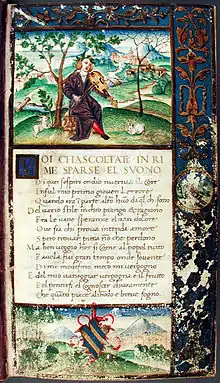 VOI CHASCOLTATE IN RI
ME SPARSE EL SVONO
Di quei sospiri ondio nutriva il core
In sul mio primo giovenil errore
Quando era in parte altro huo da quel chi sono
Del vario stile in chio piango et ragiono
Fra le vane speranze el van dolore
Ove sia chi per prova intenda amore
Spero trovar pieta non che perdono
Ma ben veggio hor si come al popol tutto
Favola fui gran tempo onde sovente
Di me medesmo meco mi vergogno
Et del mio vaneggiar vergogna e il frutto
El pentirsi el conoscer chiaramente
Che quanto piace al mondo e breve sogno